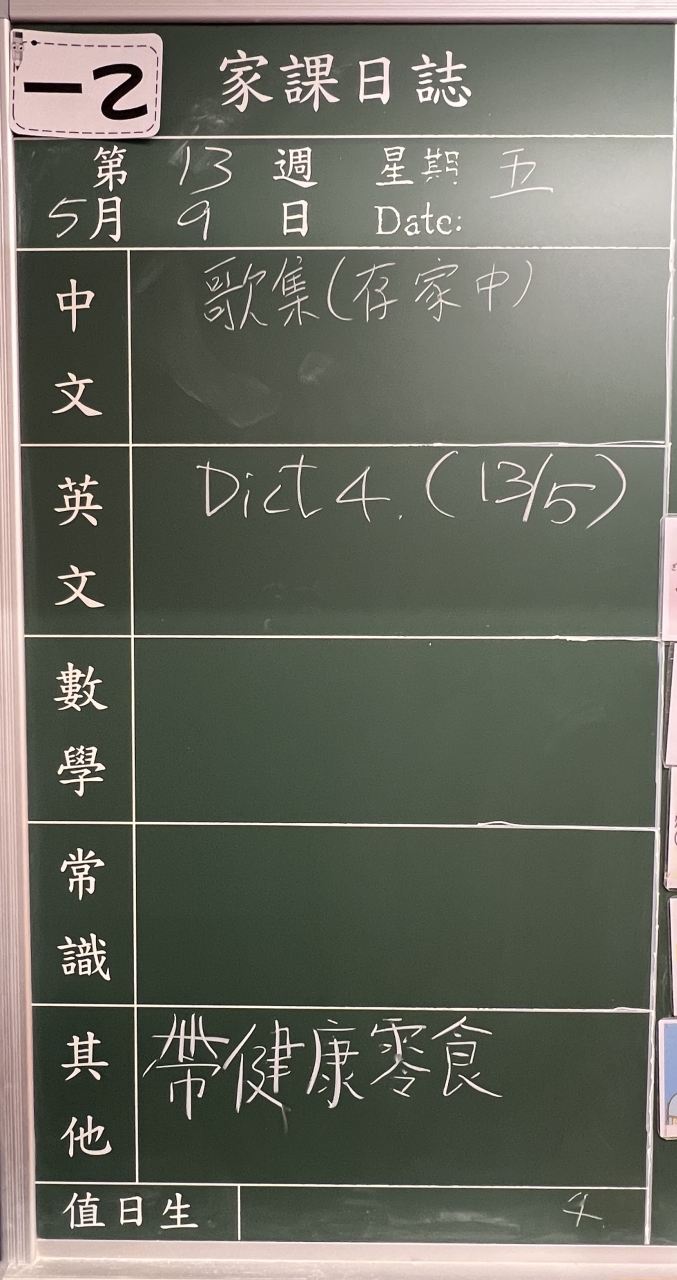 一乙
家課日誌
第 13 週 星期 五
5月 9 日 Date:
中文
歌集(存家中)
英文
Dict 4. (13/5)
數學
常識
其他
帶健康零食
值日生 4